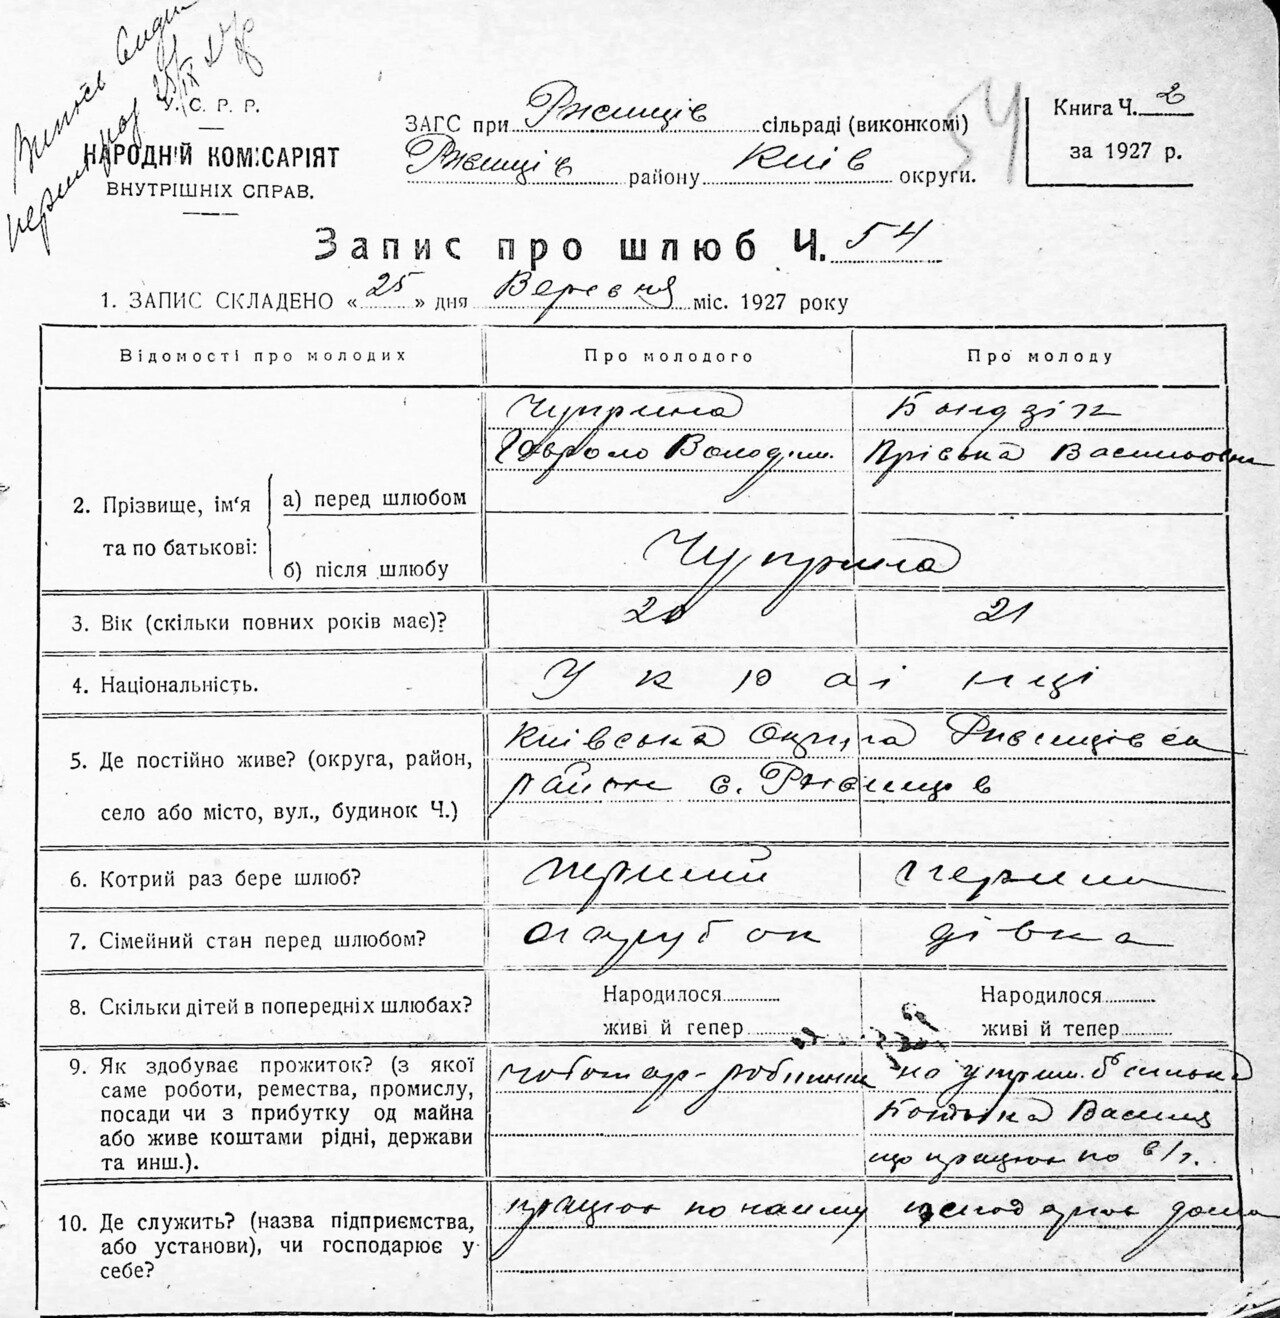 Випись видан
У. С. Р. Р.
НАРОДНІЙ КОМІСАРІЯТ
ВНУТРІШНІХ СПРАВ.
ЗАГС при Ржищів сільраді (виконкомі)
Ржищів району Київ округи.
54
Книга Ч. 2
за 1927 р.
Запис про шлюб Ч. 54
1. ЗАПИС СКЛАДЕНО «25» дня Вересня міс. 1927 року
Відомості про молодих Про молодого Про молоду
Чуприна
Володим.
Пріська Васильовна
2. Прізвище, ім‘я та по батькові:
а) перед шлюбом
б) після шлюбу
Чуприна
3. Вік (скільки повних років має)? 20 21
4. Національність. Українці
5. Де постійно живе? (округа, район,
село або місто, вул., будинок Ч.)
Київська Округа Ржищівськ
район с. Ржищів
6. Котрий раз бере шлюб? перший перший
7. Сімейний стан перед шлюбом? парубок дівка
8. Скільки дітей в попередніх шлюбах?
Народилося Народилося
живі й тепер живі й тепер
9. Як здобуває прожиток? (з якої
саме роботи, ремества, промислу,
посади чи з прибутку од майна
або живе коштами рідні, держави
та инш.).
чоботар-робітник
на утрим. батька
Василя
що працює по с/г.
10. Де служить? (назва підприємства,
або установи), чи господарює у
себе?
працює по найму
дома